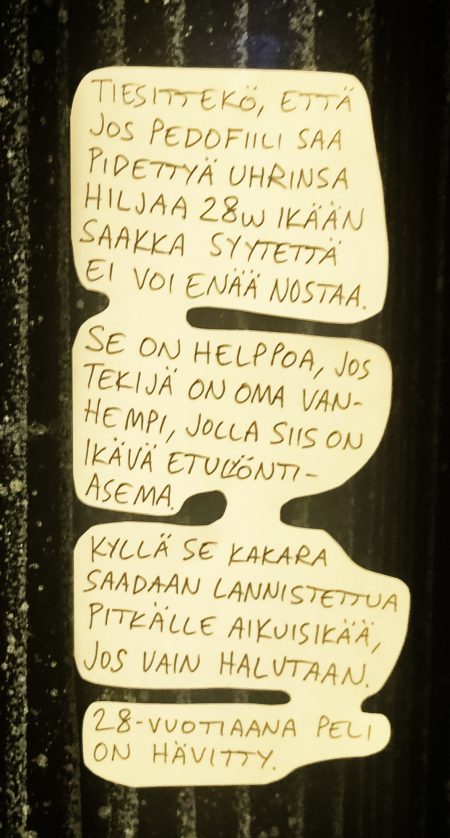 TIESITTEKÖ, ETTÄ
JOS PEDOFIILI SAA
PIDETTYÄ UHRINSA
HILJAA 28W IKÄÄN
SAAKKA SYYTETTÄ
EI VOI ENÄÄ NOSTAA.
SE ON HELPPOA, JOS
TEKIJÄ ON OMA VAN-
HEMPI, JOLLA SIIS ON
IKÄVÄ ETULYÖNTI-
ASEMA.
KYLLÄ SE KAKARA
SAADAAN LANNISTETTUA
PITKÄLLE AIKUISIKÄÄ,
JOS VAIN HALUTAAN.
28-VUOTIAANA PELI
ON HÄVITTY.